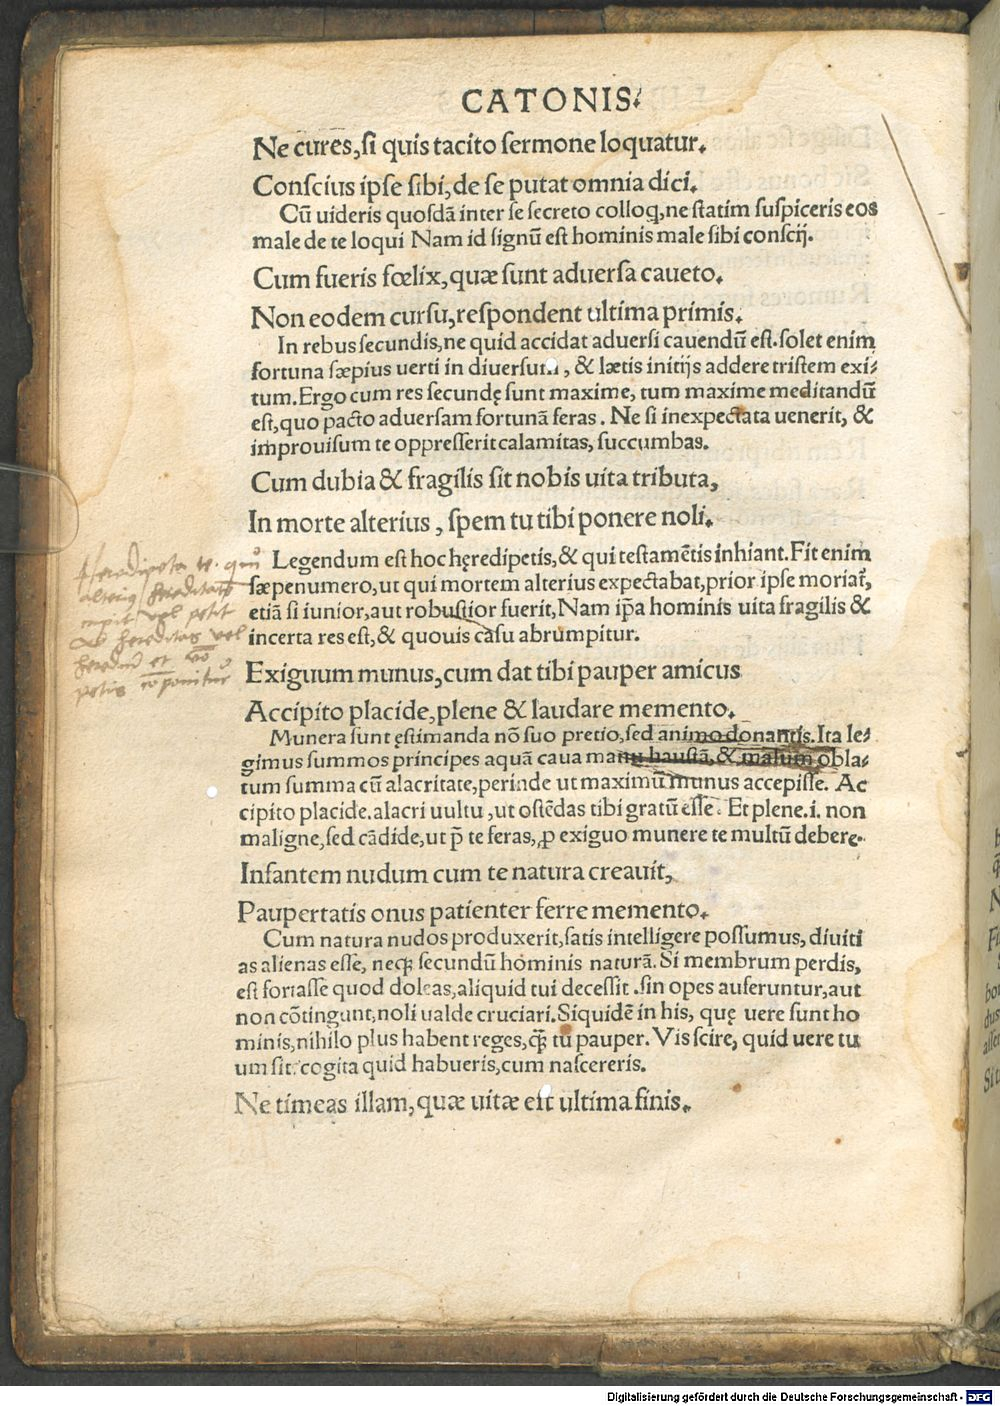 CATONIS.
Ne cures, si quis tacito sermone loquatur.
Conscius ipse sibi, de se putat omnia dici.
Cũ uideris quosdã inter se secreto colloq, ne statim suspiceris eos
male de te loqui Nam id signũ est hominis male sibi conscij.
Cum fueris fœlix, quæ sunt aduersa caueto.
Non eodem cursu, respondent ultima primis.
In rebus secundis, ne quid accidat aduersi cauendũ est. solet enim
fortuna sæpius uerti in diuersum, & lætis initijs addere tristem exi-
tum. Ergo cum res secundę sunt maxime, tum maxime meditandũ
est, quo pacto aduersam fortunã feras. Ne si inexpectata uenerit, &
improuisum te oppresserit calamitas, succumbas.
Cum dubia & fragilis sit nobis uita tributa,
In morte alterius, spem tu tibi ponere noli.
Legendum est hoc hęredipetis, & qui testamẽtis inhiant. Fit enim
sæpenumero, ut qui mortem alterius expectabat, prior ipse moriat̃,
etiã si iunior, aut robustior fuerit, Nam ip̃a hominis uita fragilis &
incerta res est, & quouis casu abrumpitur.
Heredipeta te.
alterius hereditatẽ
vel petit
hereditas vel
et
petis cōponitur
Exiguum munus, cum dat tibi pauper amicus
Accipito placide, plene & laudare memento.
Munera sunt ęstimanda nõ suo pretio, sed animo donantis. Ita le-
gimus summos principes aquã caua manu haustã, & malum obla-
tum summa cũ alacritate, perinde ut maximũ munus accepisse. Ac
cipito placide. alacri uultu, ut ostẽdas tibi gratũ esse. Et plene. i. non
maligne, sed cãdide, ut p̃ te feras, ꝓ exiguo munere te multũ debere.
Infantem nudum cum te natura creauit,
Paupertatis onus patienter ferre memento.
Cum natura nudos produxerit, satis intelligere possumus, diuiti
as alienas esse, neqꝫ secundũ hominis naturã. Si membrum perdis,
est fortasse quod doleas, aliquid tui decessit. sin opes auferuntur, aut
non cõtingunt, noli ualde cruciari. Siquidẽ in his, quę uere sunt ho
minis, nihilo plus habent reges, q̃ꝫ tu pauper. Vis scire, quid uere tu
um sit: cogita quid habueris, cum nascereris.
Ne timeas illam, quæ uitæ est ultima finis.
Digitalisierung gefördert durch die Deutsche Forschungsgemeinschaft - DFG